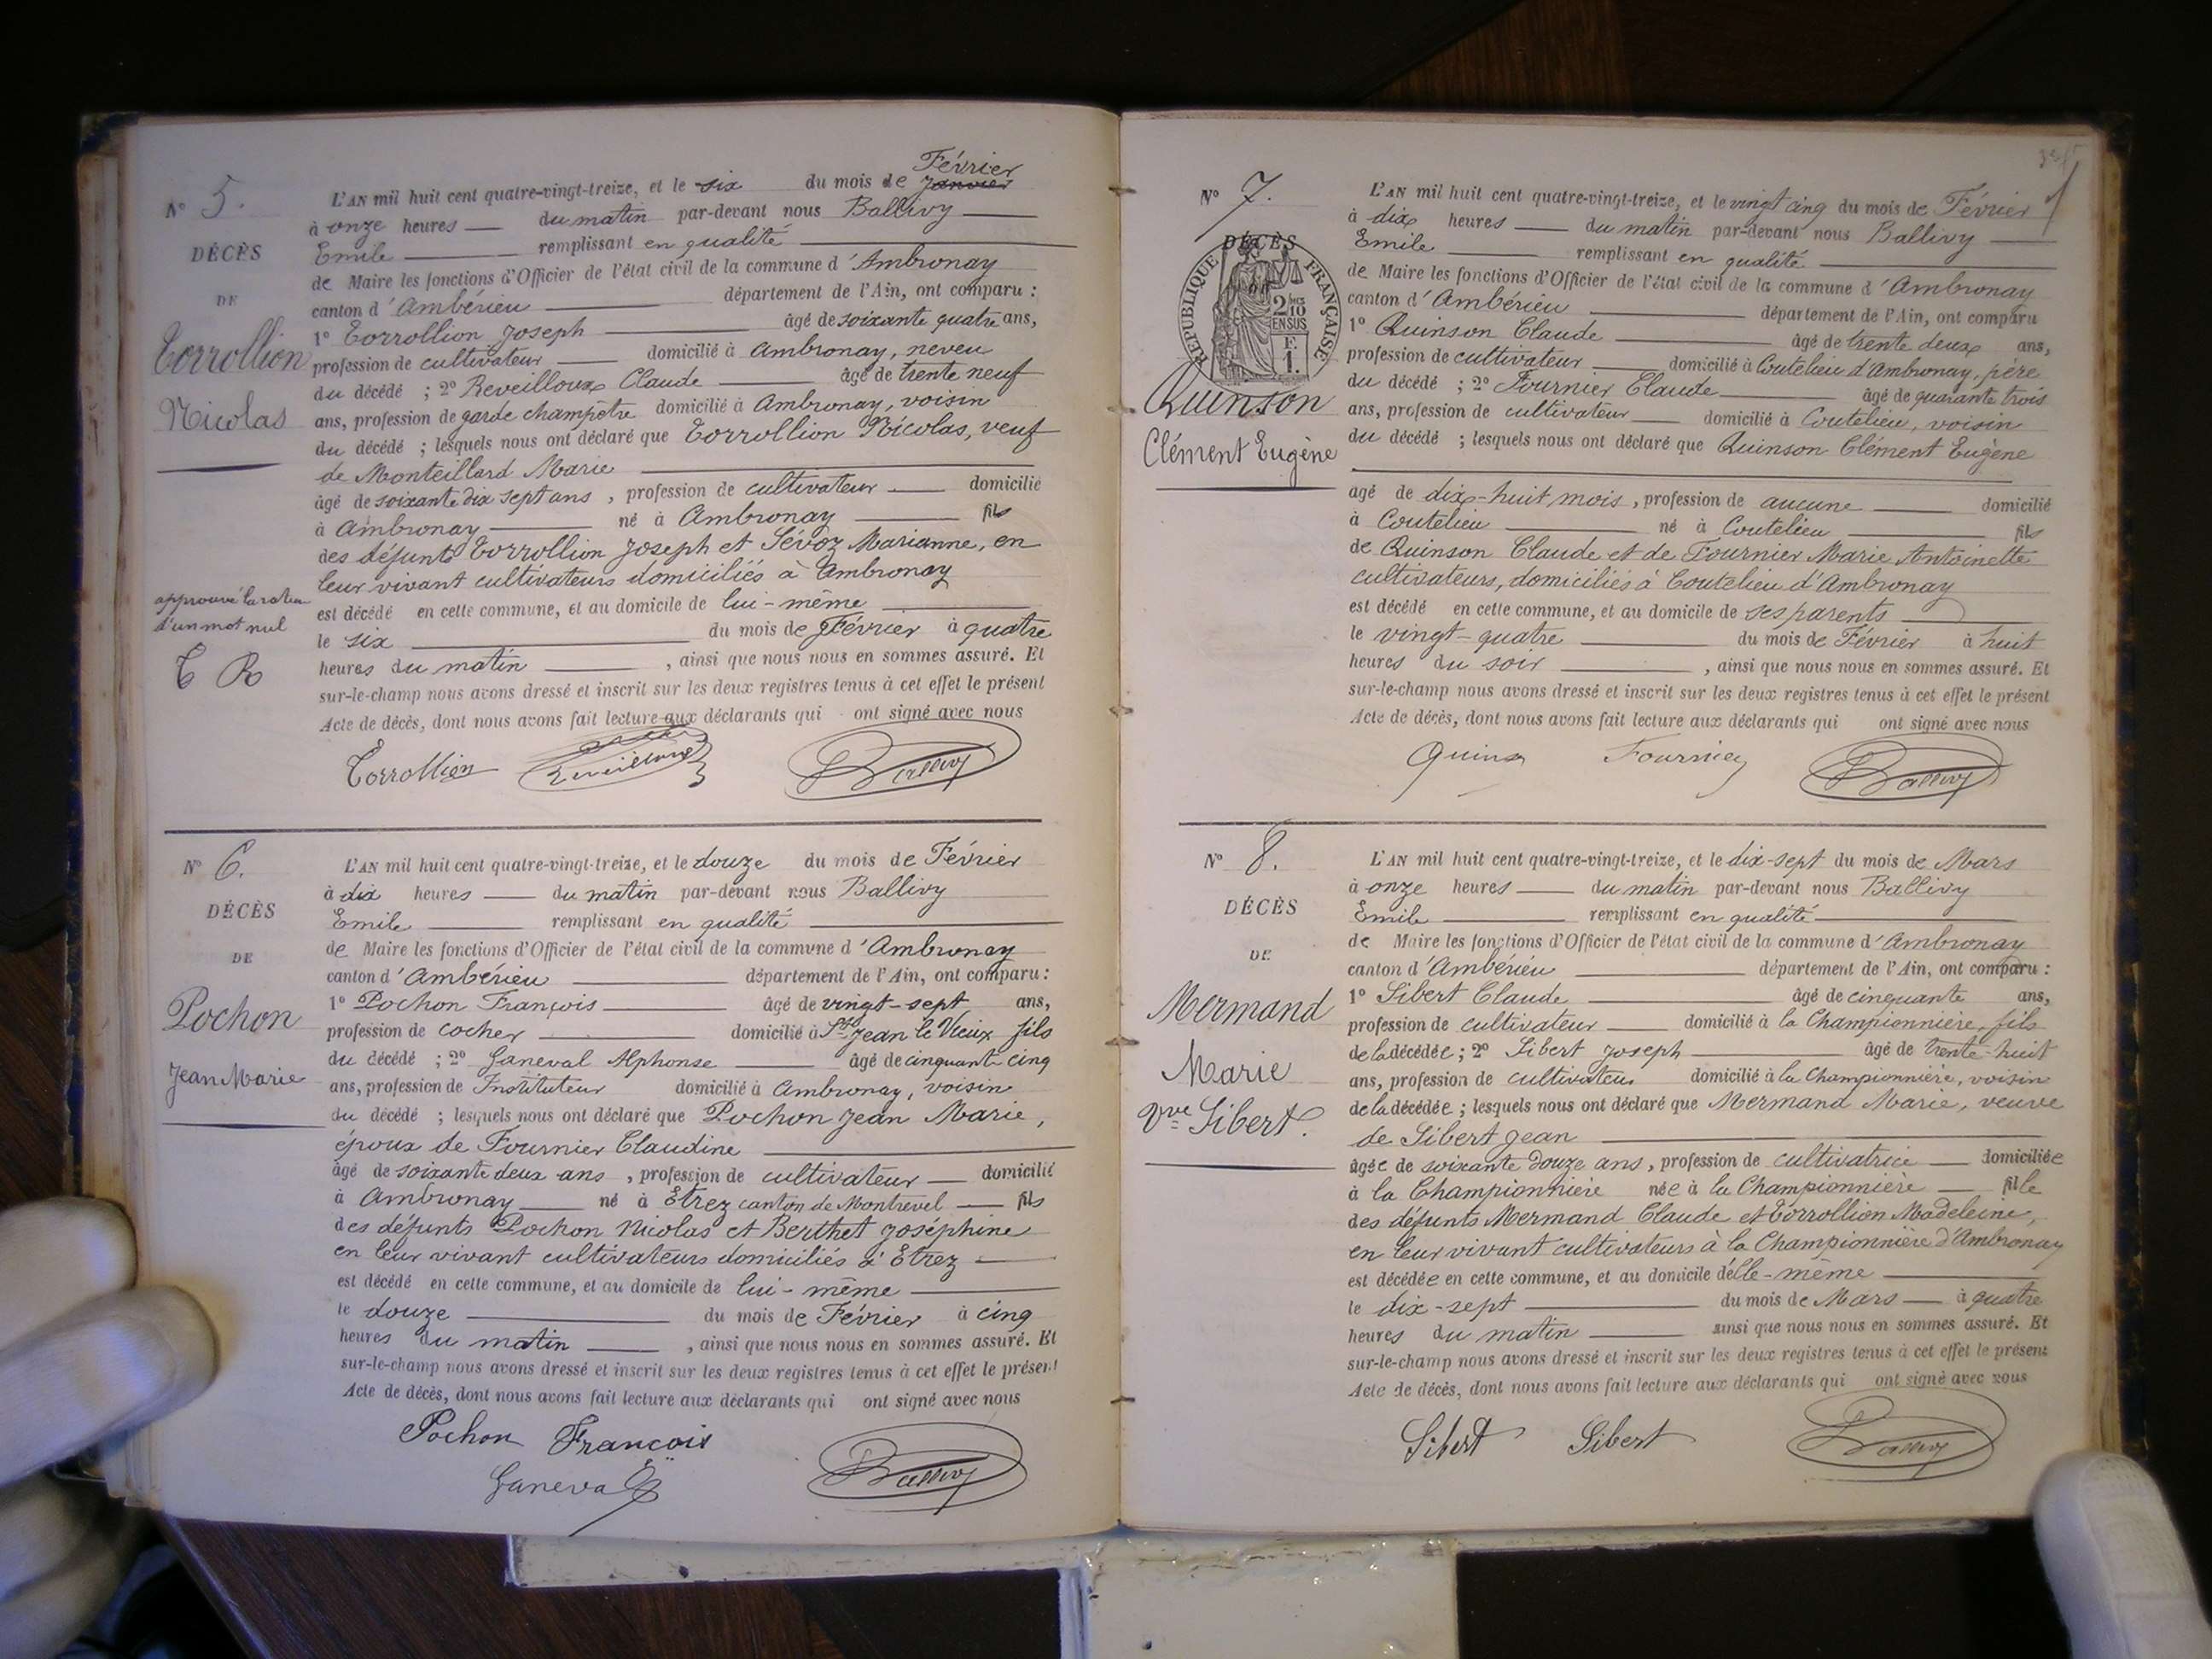 N° 5.
DÉCÈS
DE
Torrollion
Nicolas
approuvé la rature
d'un mot nul
T R
L'AN mil huit cent quatre-vingt-treize, et le six du mois de Janvier Février
à onze heures du matin par-devant nous Ballivy
Emile remplissant en qualité
de Maire les fonctions d'Officier de l'état civil de la commune d'Ambronay
canton d'Ambérieu département de l'Ain, ont comparu :
1° Torrollion Joseph âgé de soixante quatre ans,
profession de cultivateur domicilié à Ambronay, neveu
du décédé ; 2° Reveilloux Claude âgé de trente neuf
ans, profession de garde champêtre domicilié à Ambronay, voisin
du décédé ; lesquels nous ont déclaré que Torrollion Nicolas, veuf
de Monteillard Marie
âgé de soixante dix sept ans, profession de cultivateur domicilié
à Ambronay né à Ambronay fils
des défunts Torrollion Joseph et Sévoz Marianne, en
leur vivant cultivateurs domiciliés à Ambronay
est décédé en cette commune, et au domicile de lui-même
le six du mois de Février à quatre
heures du matin, ainsi que nous nous en sommes assuré. Et
sur-le-champ nous avons dressé et inscrit sur les deux registres tenus à cet effet le présent
Acte de décès, dont nous avons fait lecture aux déclarants qui ont signé avec nous
Torrollion Reveilloux Ballivy
N° 6.
DÉCÈS
DE
Pochon
Jean Marie
L'AN mil huit cent quatre-vingt-treize, et le douze du mois de Février
à dix heures du matin par-devant nous Ballivy
Emile remplissant en qualité
de Maire les fonctions d'Officier de l'état civil de la commune d'Ambronay
canton d'Ambérieu département de l'Ain, ont comparu :
1° Pochon François âgé de vingt-sept ans,
profession de cocher domicilié à St Jean le Vieux fils
du décédé ; 2° Ganeval Alphonse âgé de cinquante cinq
ans, profession de Instituteur domicilié à Ambronay, voisin
du décédé ; lesquels nous ont déclaré que Pochon Jean Marie,
époux de Fournier Claudine
âgé de soixante deux ans, profession de cultivateur domicilié
à Ambronay né à Etrez canton de Montrevel fils
des défunts Pochon Nicolas et Berthet Joséphine
en leur vivant cultivateurs domiciliés à Etrez
est décédé en cette commune, et au domicile de lui-même
le douze du mois de Février à cinq
heures du matin, ainsi que nous nous en sommes assuré. Et
sur-le-champ nous avons dressé et inscrit sur les deux registres tenus à cet effet le présent
Acte de décès, dont nous avons fait lecture aux déclarants qui ont signé avec nous
Pochon François
Ganeval Ballivy
N° 7.
DÉCÈS
RÉPUBLIQUE FRANÇAISE
2/10
EN SUS
F.
1.
Quinson
Clément Eugène
L'AN mil huit cent quatre-vingt-treize, et le vingt cinq du mois de Février
à dix heures du matin par-devant nous Ballivy
Emile remplissant en qualité
de Maire les fonctions d'Officier de l'état civil de la commune d'Ambronay
canton d'Ambérieu département de l'Ain, ont comparu
1° Quinson Claude âgé de trente deux ans,
profession de cultivateur domicilié à Coutelieu d'Ambronay, père
du décédé ; 2° Fournier Claude âgé de quarante trois
ans, profession de cultivateur domicilié à Coutelieu, voisin
du décédé ; lesquels nous ont déclaré que Quinson Clément Eugène
agé de dix-huit mois, profession de aucune domicilié
à Coutelieu né à Coutelieu fils
de Quinson Claude et de Fournier Marie Antoinette
cultivateurs, domiciliés à Coutelieu d'Ambronay
est décédé en cette commune, et au domicile de ses parents
le vingt-quatre du mois de Février à huit
heures du soir, ainsi que nous nous en sommes assuré. Et
sur-le-champ nous avons dressé et inscrit sur les deux registres tenus à cet effet le présent
Acte de décès, dont nous avons fait lecture aux déclarants qui ont signé avec nous
Fournier Ballivy
N° 8.
DÉCÈS
DE
Mermand
Marie
Vve Sibert.
L'AN mil huit cent quatre-vingt-treize, et le dix-sept du mois de Mars
à onze heures du matin par-devant nous Ballivy
Emile remplissant en qualité
de Maire les fonctions d'Officier de l'état civil de la commune d'Ambronay
canton d'Ambérieu département de l'Ain, ont comparu :
1° Sibert Claude âgé de cinquante ans,
profession de cultivateur domicilié à la Championnière, fils
de la décédée ; 2° Sibert Joseph âgé de trente-huit
ans, profession de cultivateur domicilié à la Championnière, voisin
de la décédée ; lesquels nous ont déclaré que Mermand Marie, veuve
de Sibert Jean
âgée de soixante douze ans, profession de cultivatrice domiciliée
à la Championnière née à la Championnière fille
des défunts Mermand Claude et Torrollion Madeleine,
en leur vivant cultivateurs à la Championnière d'Ambronay
est décédée en cette commune, et au domicile d'elle-même
le dix-sept du mois de Mars à quatre
heures du matin ainsi que nous nous en sommes assuré. Et
sur-le-champ nous avons dressé et inscrit sur les deux registres tenus à cet effet le présent
Acte de décès, dont nous avons fait lecture aux déclarants qui ont signé avec nous
Sibert Sibert Ballivy